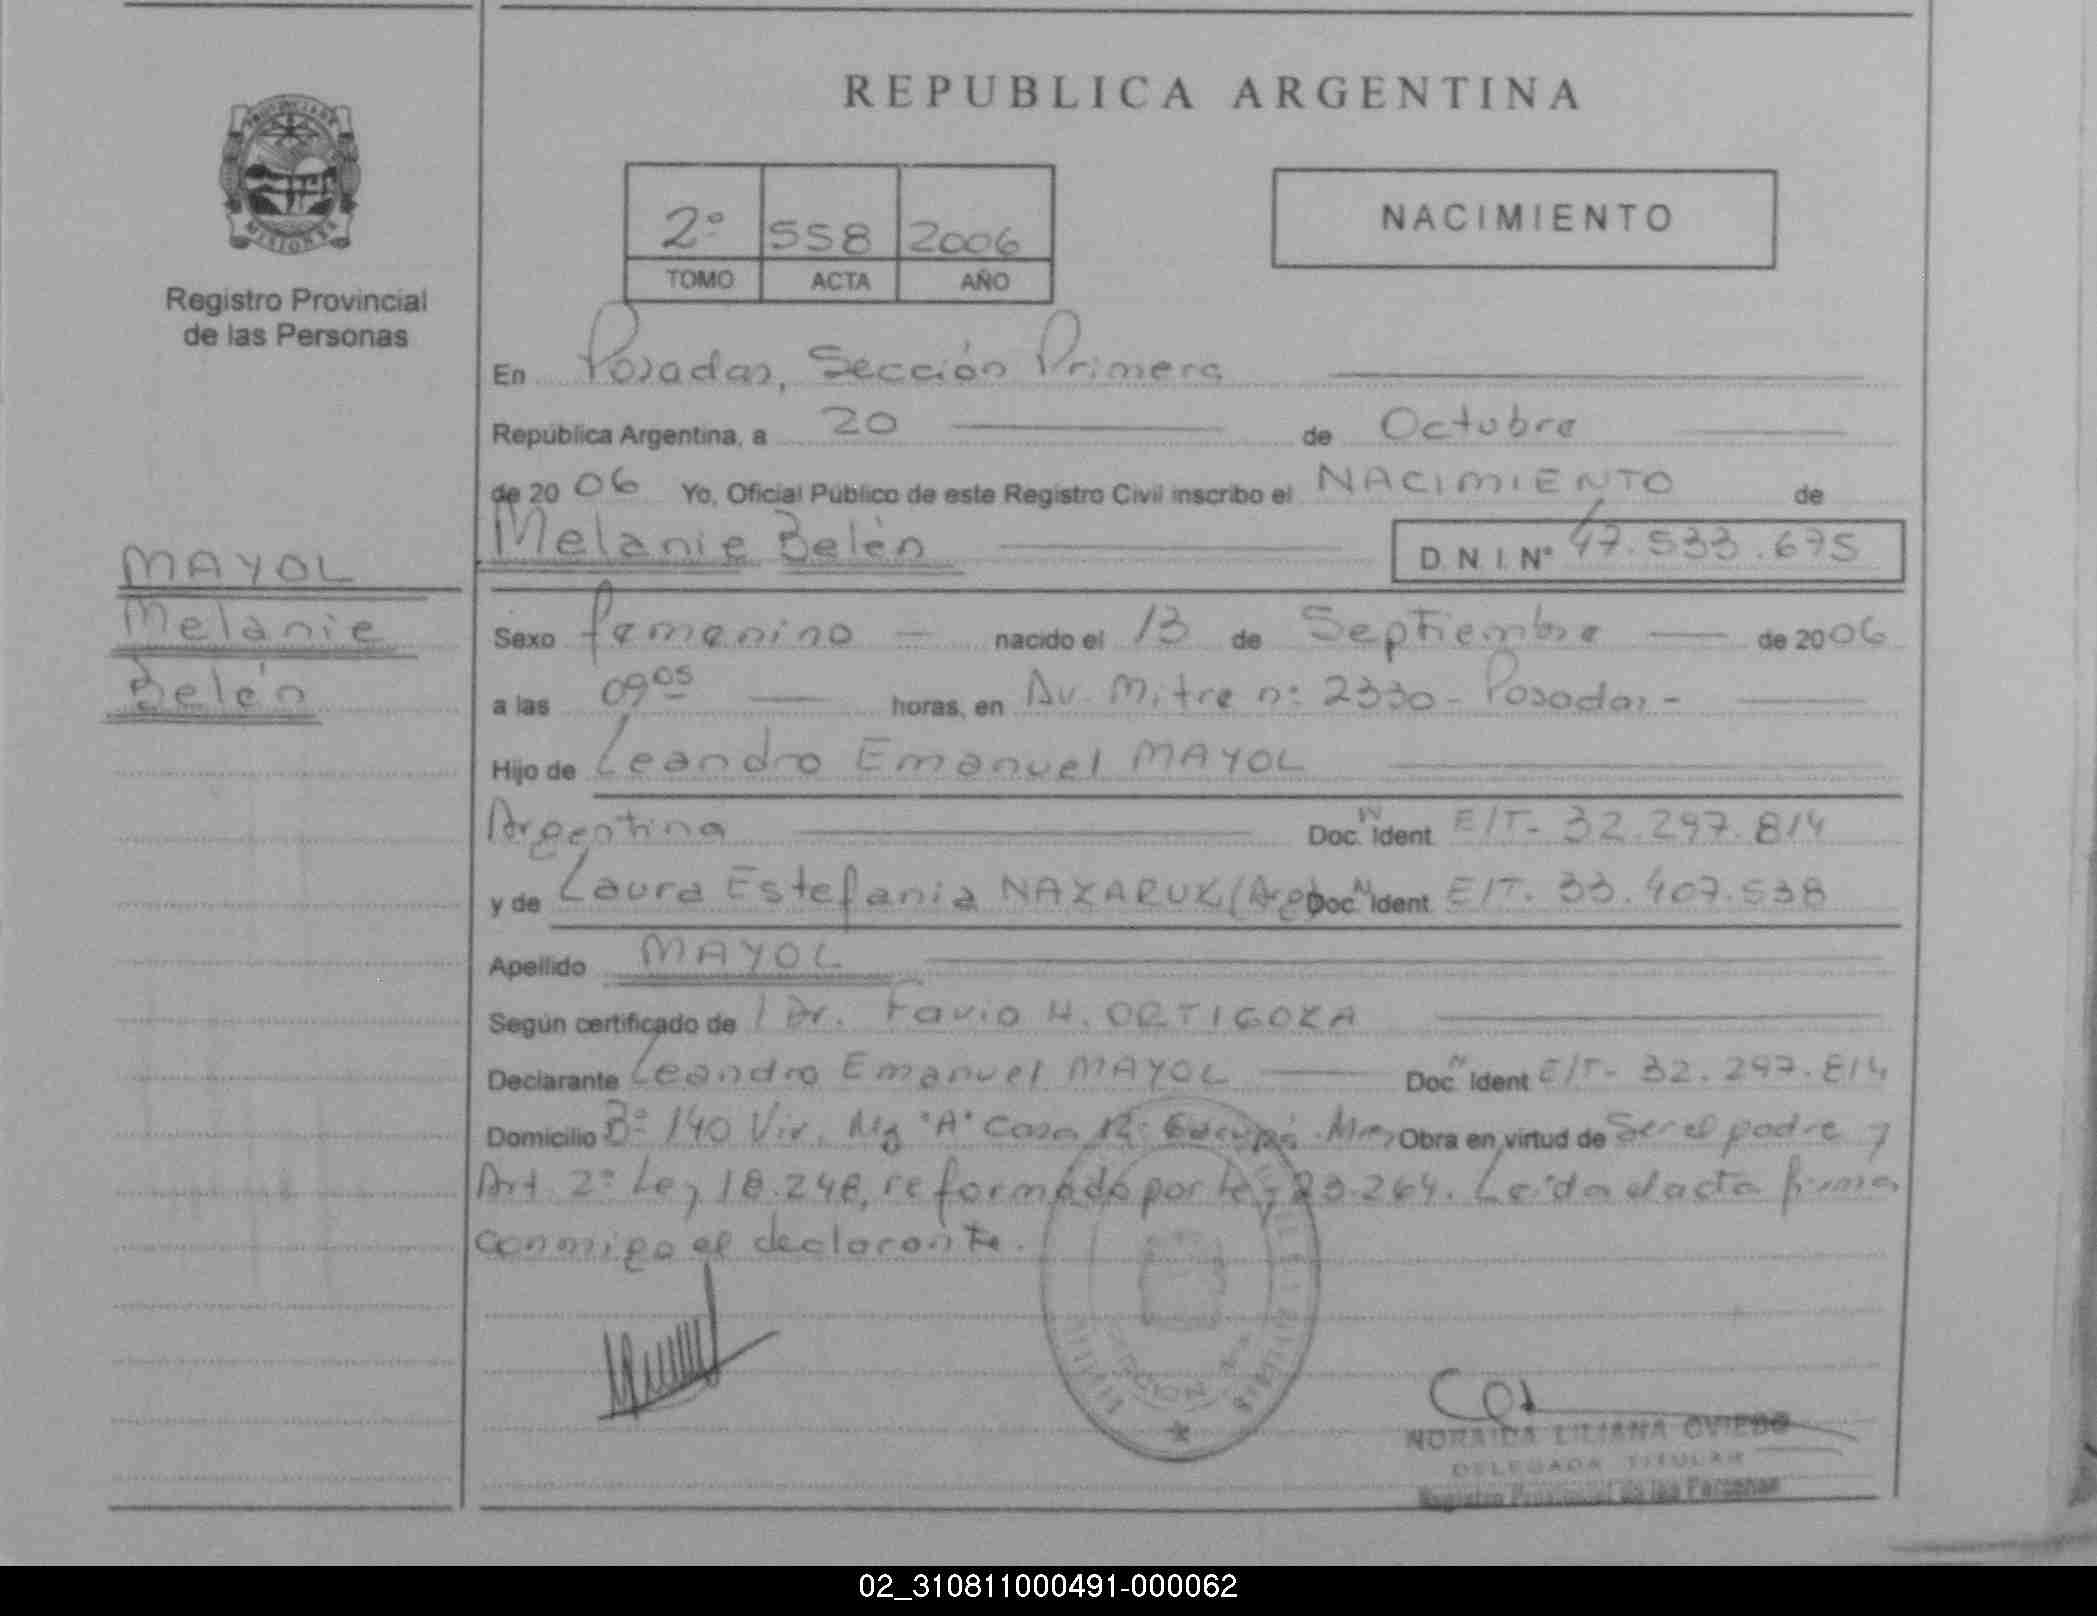 REPUBLICA ARGENTINA
PROVINCIA DE
MISIONES
Registro Provincial
de las Personas
2º 558 2006
TOMO ACTA AÑO
NACIMIENTO
En Posadas, Sección Primera
República Argentina, a 20 de Octubre
de 2006 Yo, Oficial Público de este Registro Civil inscribo el NACIMIENTO de
Melanie Belén D. N. I. Nº 47.533.675
MAYOL
Melanie
Belén
Sexo femenino nacido el 13 de Septiembre de 2006
a las 09 05 horas, en Av. Mitre nº 2330 - Posadas -
Hijo de Leandro Emanuel MAYOL
Argentina Doc. N Ident. E/T- 32.297.814
y de Laura Estefania NAZARUK (Arg) Doc. N Ident. E/T. 33.407.538
Apellido MAYOL
Según certificado de / Dr. Favio H. ORTIGOZA
Declarante Leandro Emanuel MAYOL Doc. N Ident E/T- 32.297.814
Domicilio Bº 140 Viv. Mz "A" Casa 12 Garupá Mnes Obra en virtud de Ser el padre y
Art. 2º Ley 18.248, reformado por Ley 23.264. Leída el acta firma
conmigo el declarante.
NORAIDA LILIANA OVIEDO
DELEGADA TITULAR
Registro Provincial de las Personas
02_310811000491-000062